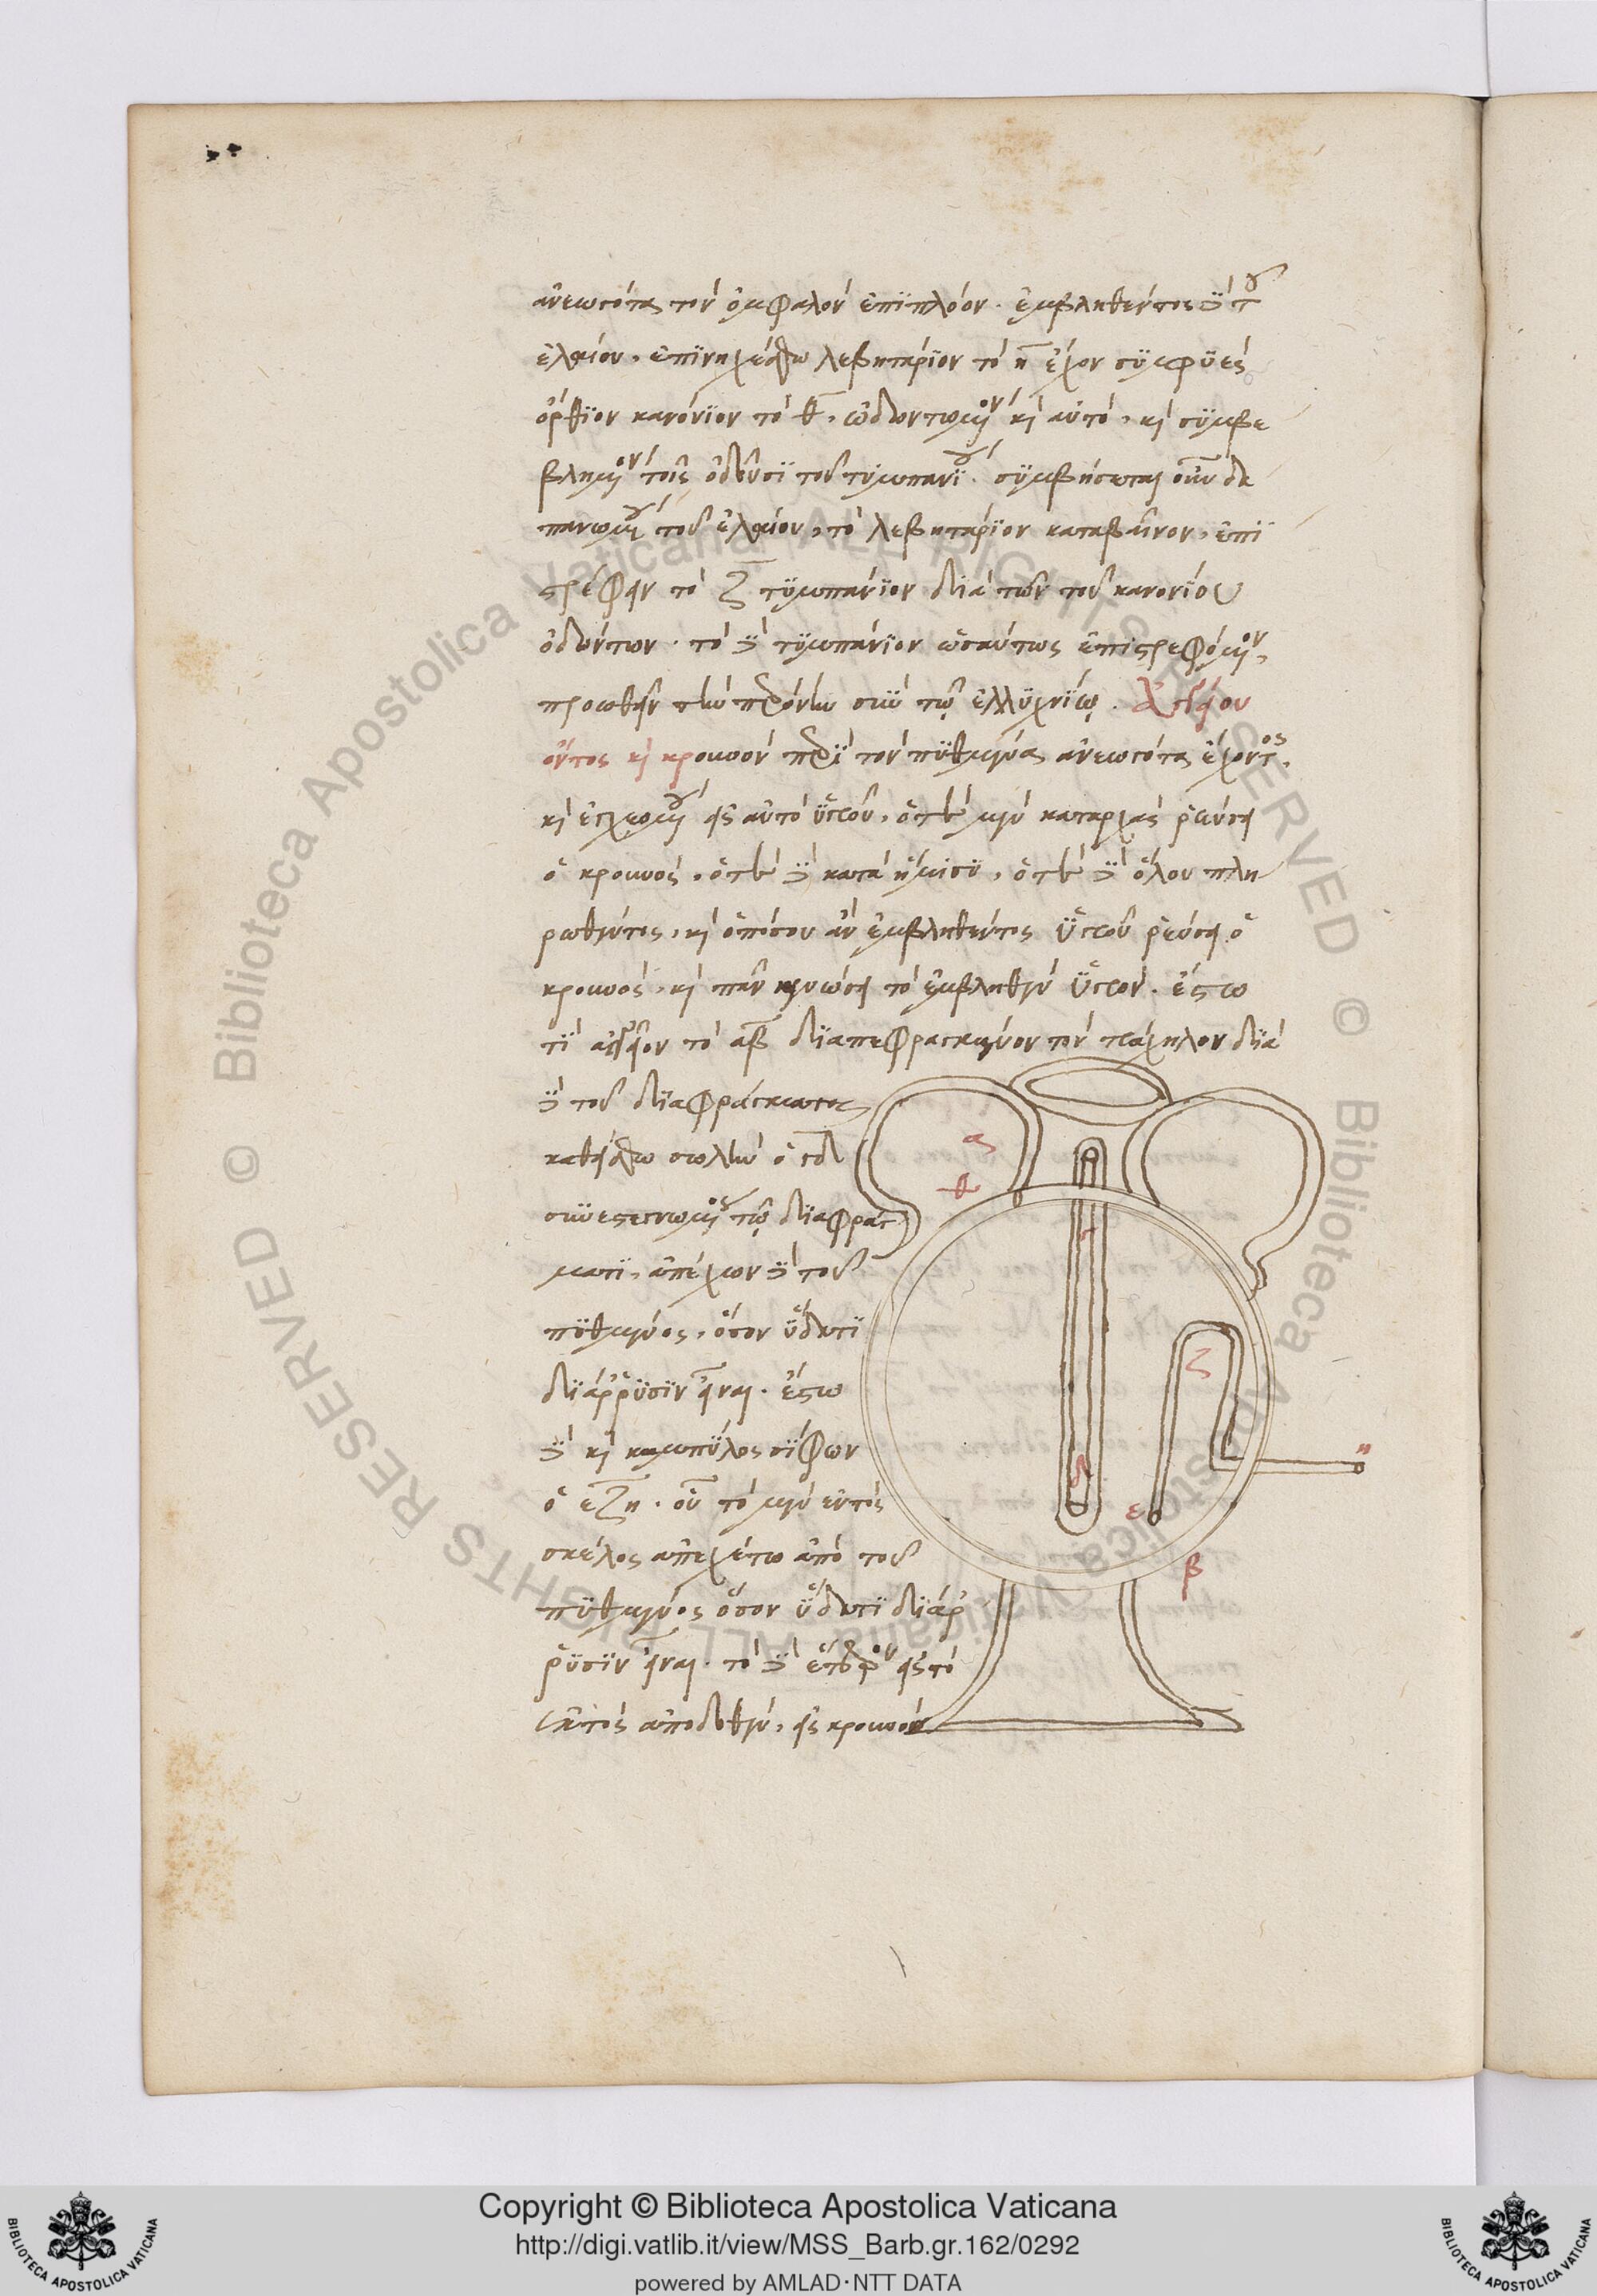 ἀνεωγότα τὸν ὀμφαλὸν ἐπίπλοον. ἐμβληθέντος δὲ τοῦ
ἐλαίου, ἐπινηχέσθω λεβητάριον τὸ η ἔχον συμφυὲς
ὄρθιον κανόνιον τὸ θ, ὠδοντωμένον καὶ αὐτὸ, καὶ συμβε
βλημένον τοῖς ὀδοῦσι τοῦ τυμπανίου. συμβήσεται οὖν δα
πανωμένου τοῦ ἐλαίου, τὸ λεβητάριον καταβαῖνον, ἐπι
στρέφειν τὸ ζ τυμπάνιον διὰ τῶν τοῦ κανονίου
ὀδόντων. τὸ δὲ τυμπάνιον ὡσαύτως ἐπιστρεφόμενον,
προωθεῖν τὴν περόνην σὺν τῷ ἐλλυχνίῳ. Ἀγγείου
ὄντος καὶ κρουνὸν περὶ τὸν πυθμένα ἀνεωγότα ἔχοντος,
καὶ ἐγχεομένου εἰς αὐτὸ ὑγροῦ, ὁτὲ μὲν καταρχὰς ῥεύσει
ὁ κρουνὸς, ὁτὲ δὲ κατὰ ἥμισυ, ὁτὲ δὲ ὅλου πλη
ρωθέντος, καὶ ὁπόσου ἂν ἐμβληθέντος ὑγροῦ ῥεύσει ὁ
κρουνὸς, καὶ πᾶν κενώσει τὸ ἐμβληθὲν ὑγρόν. ἔστω
τι ἀγγεῖον τὸ αβ διαπεφραγμένον τὸν τράχηλον διὰ
δὲ τοῦ διαφράγματος
καθείσθω σωλὴν ὁ γδ
συνεστεγνωμένος τῷ διαφράγ
ματι, ἀπέχων δὲ τοῦ
πυθμένος, ὅσον ὕδατι
διάρρυσιν εἶναι. ἔστω
δὲ καὶ καμπύλος σίφων
ὁ εζη. οὗ τὸ μὲν ἐντὸς
σκέλος ἀπεχέτω ἀπὸ τοῦ
πυθμένος ὅσον ὕδατι διάρ
ρυσιν εἶναι. τὸ δὲ ἕτερον εἰς τὸ
ἐκτὸς ἀποδοθὲν, εἰς κρουνὸν
α
θ
γ
ζ
δ
ε
η
β
Copyright © Biblioteca Apostolica Vaticana
http://digi.vatlib.it/view/MSS_Barb.gr.162/0292
powered by AMLAD·NTT DATA
BIBLIOTECA APOSTOLICA VATICANA
BIBLIOTECA APOSTOLICA VATICANA
© Biblioteca Apostolica Vaticana ALL RIGHTS RESERVED © Biblioteca Apostolica Vaticana ALL RIGHTS RESERVED